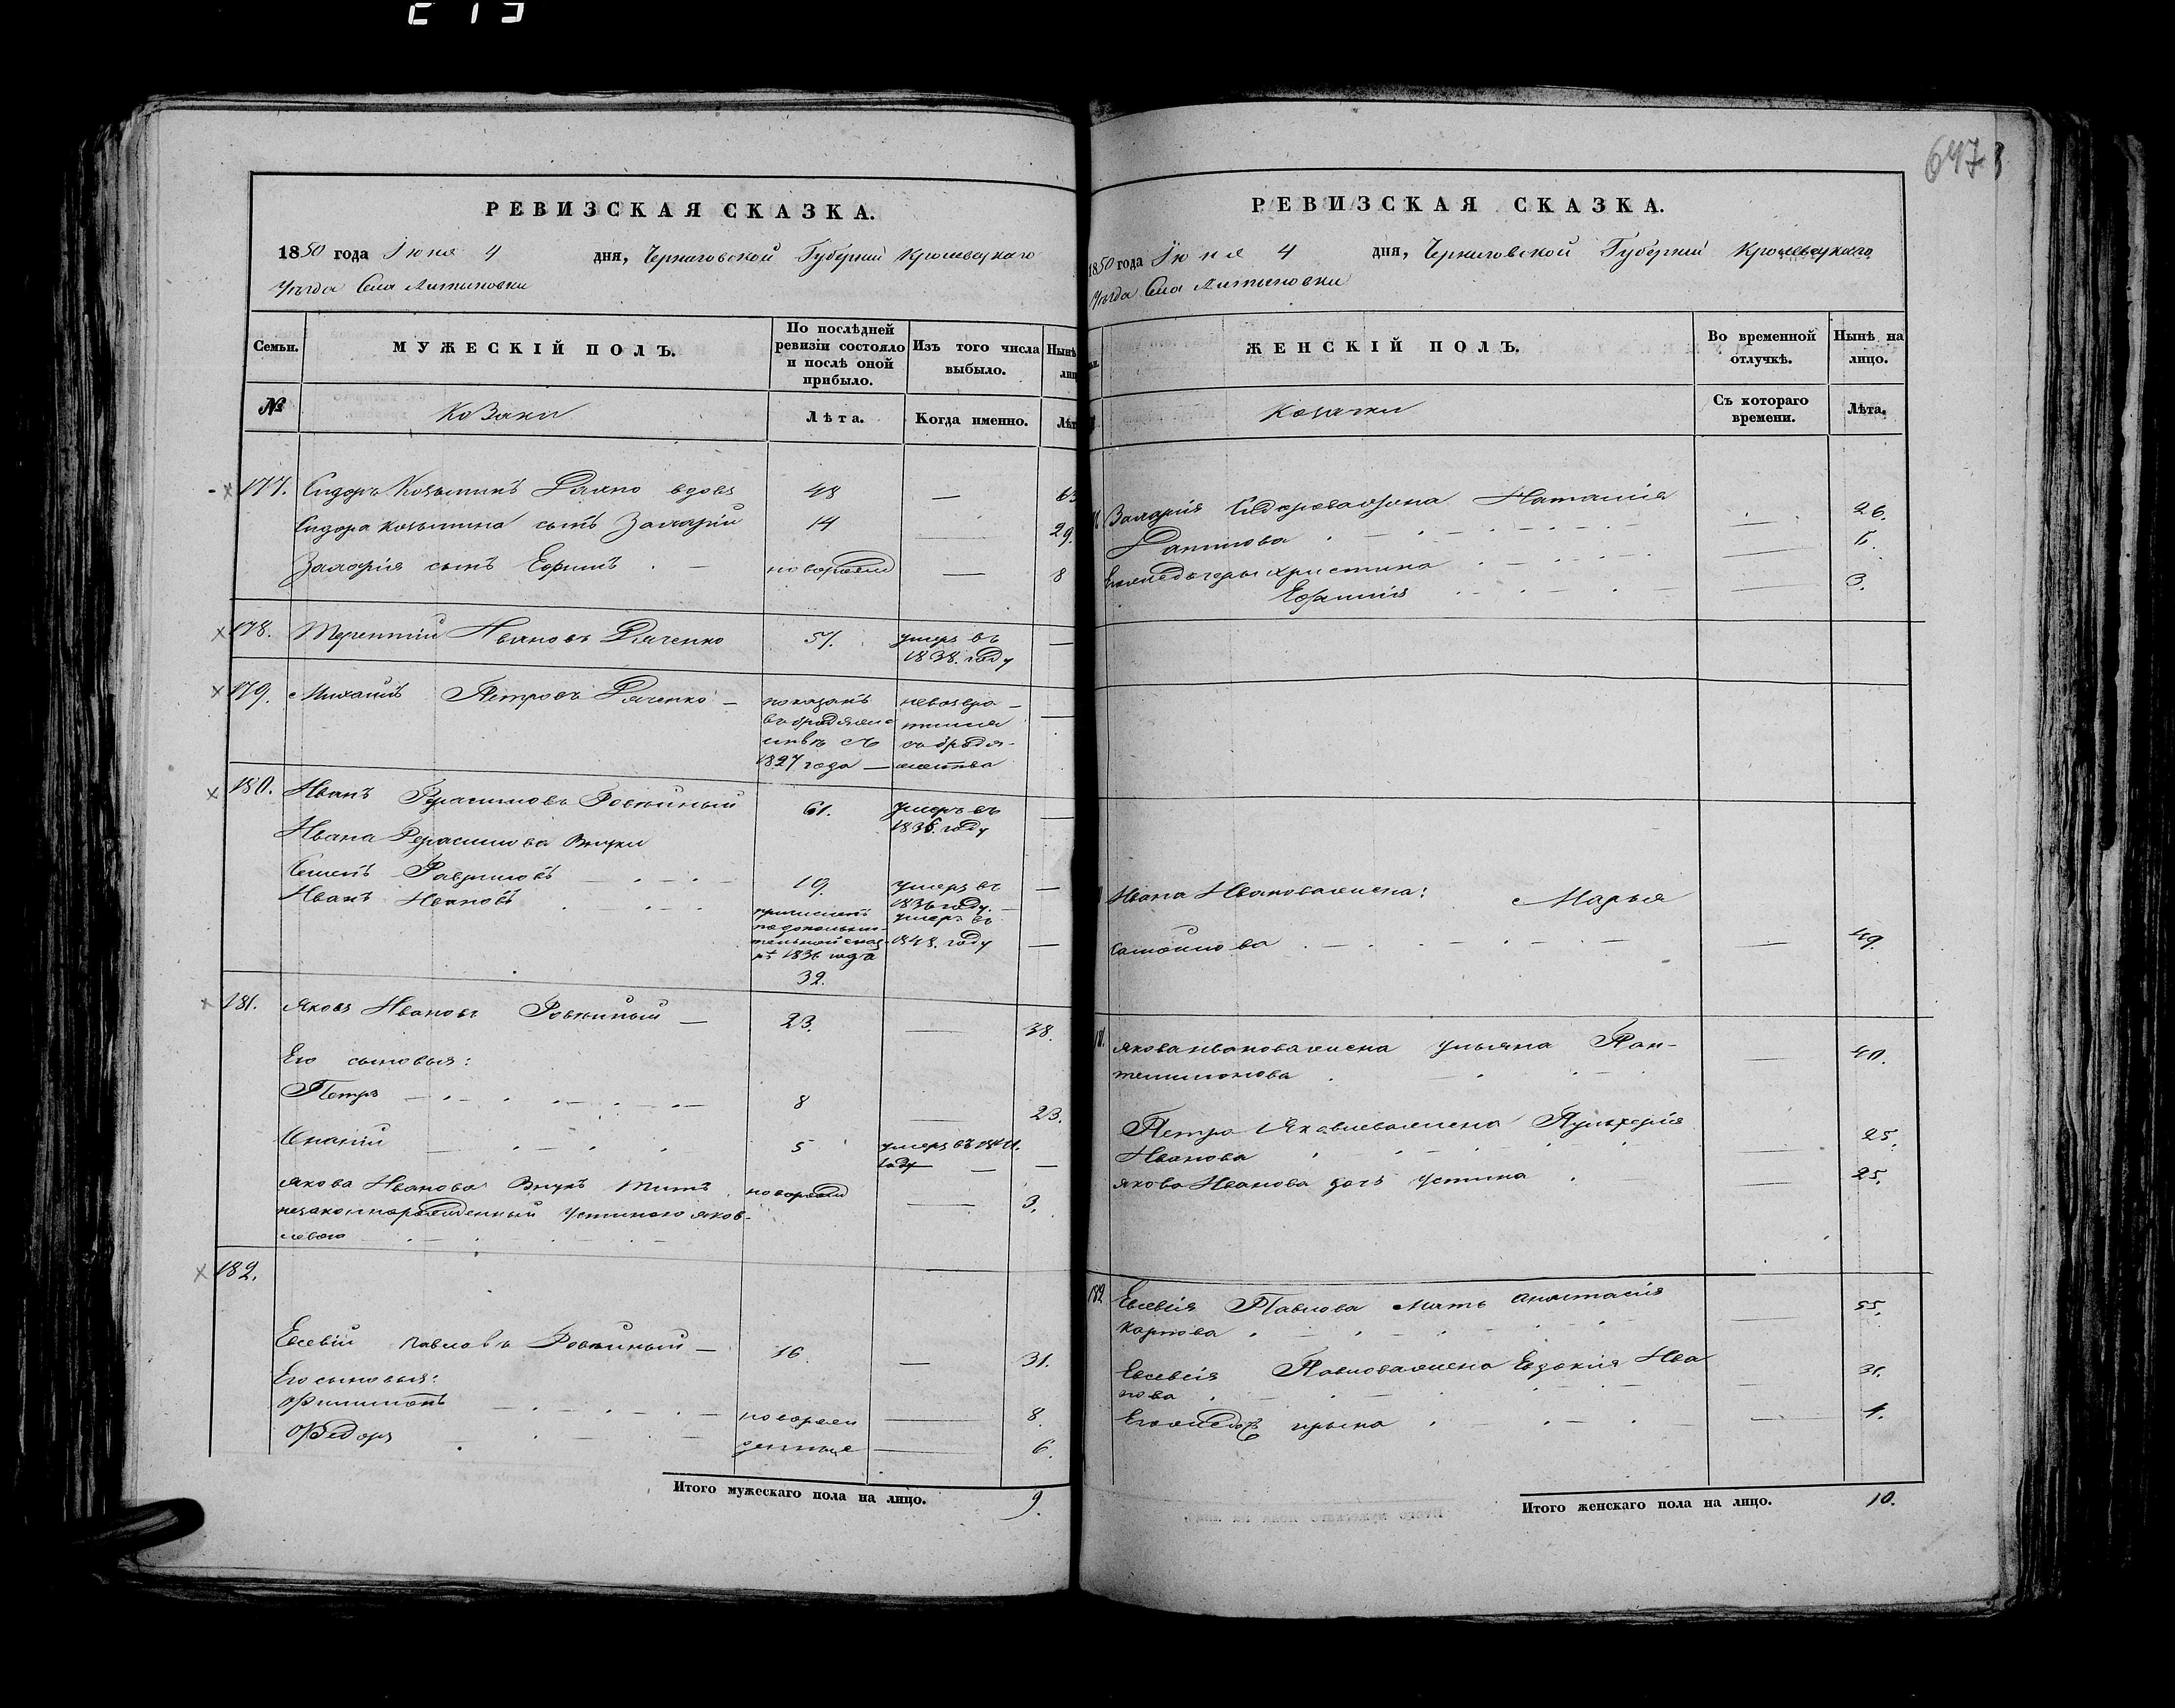 6473
РЕВИЗСКАЯ СКАЗКА.
1850 года Іюня 4 дня, Черниговской Губерніи Кролевецкаго
Уѣзда Села Литвиновки
Семьи.
МУЖЕСКІЙ ПОЛЪ.
По послѣдней ревизіи состояло и послѣ оной прибыло.
Изъ того числа выбыло.
Нынѣ
лиц
№
Козаки
Лѣта.
Когда именно.
Лѣт
177. Сидоръ Козьминъ Дяхно вдовъ 48 — 63
Сидора Козьмина сынъ Захарій 14 — 29.
Захарія сынъ Ефимъ новорожд — 8
178. Терентій Ивановъ Дяченко 57. умеръ въ
1838. году —
179. Михаилъ Петровъ Дяченко — показанъ невозвра-
въ бродяже- тился
ствѣ съ съ бродя-
1827 года — жества
180. Иванъ Герасимовъ Ровчиный 61. умеръ въ —
1836. году
Ивана Герасимова внуки
Семенъ Гавриловъ 19. умеръ въ —
1836 году.
Иванъ Ивановъ причисленъ умеръ въ
по дополни-
тельной сказ- 1848. году —
кѣ 1836 года
32.
181. Яковъ Ивановъ Ровчиный — 23. — 38.
Его сыновья:
Петръ 8 — 23.
5 умеръ въ 1841.
году — —
Якова Иванова внукъ Титъ новорожд — 3.
незаконнорожденный Устиною Яков-
левою
182.
Евсевій Павловъ Ровчиный — 16. — 31.
Его сыновья:
Филимонъ новорож — 8.
Федоръ денные — 6.
Итого мужескаго пола на лицо. 9.
РЕВИЗСКАЯ СКАЗКА.
1850 года Іюня 4 дня, Черниговской Губерніи Кролевецкаго
Уѣзда Села Литвиновки
ЖЕНСКІЙ ПОЛЪ.
Во временной отлучкѣ.
Нынѣ на лицо.
Козачки
Съ котораго времени.
Лѣта.
Захарія Сидорова жена Наталія — 26.
5.
Его же дочери Христина
Ефимія — 3.
Ивана Иванова жена: Марья
Самойлова — 49.
181. Якова Иванова жена Ульяна Пан-
телимонова — 40.
Петра Яковлева жена Пульхерія
Иванова — 25.
Якова Иванова дочь Устина — 25.
182 Евсевія Павлова мать Анастасія
Карпова — 55.
Евсевія Павлова жена Евдокія Ива
нова — 31.
Его же дочь Ирина — 1.
Итого женскаго пола на лицо. 10.